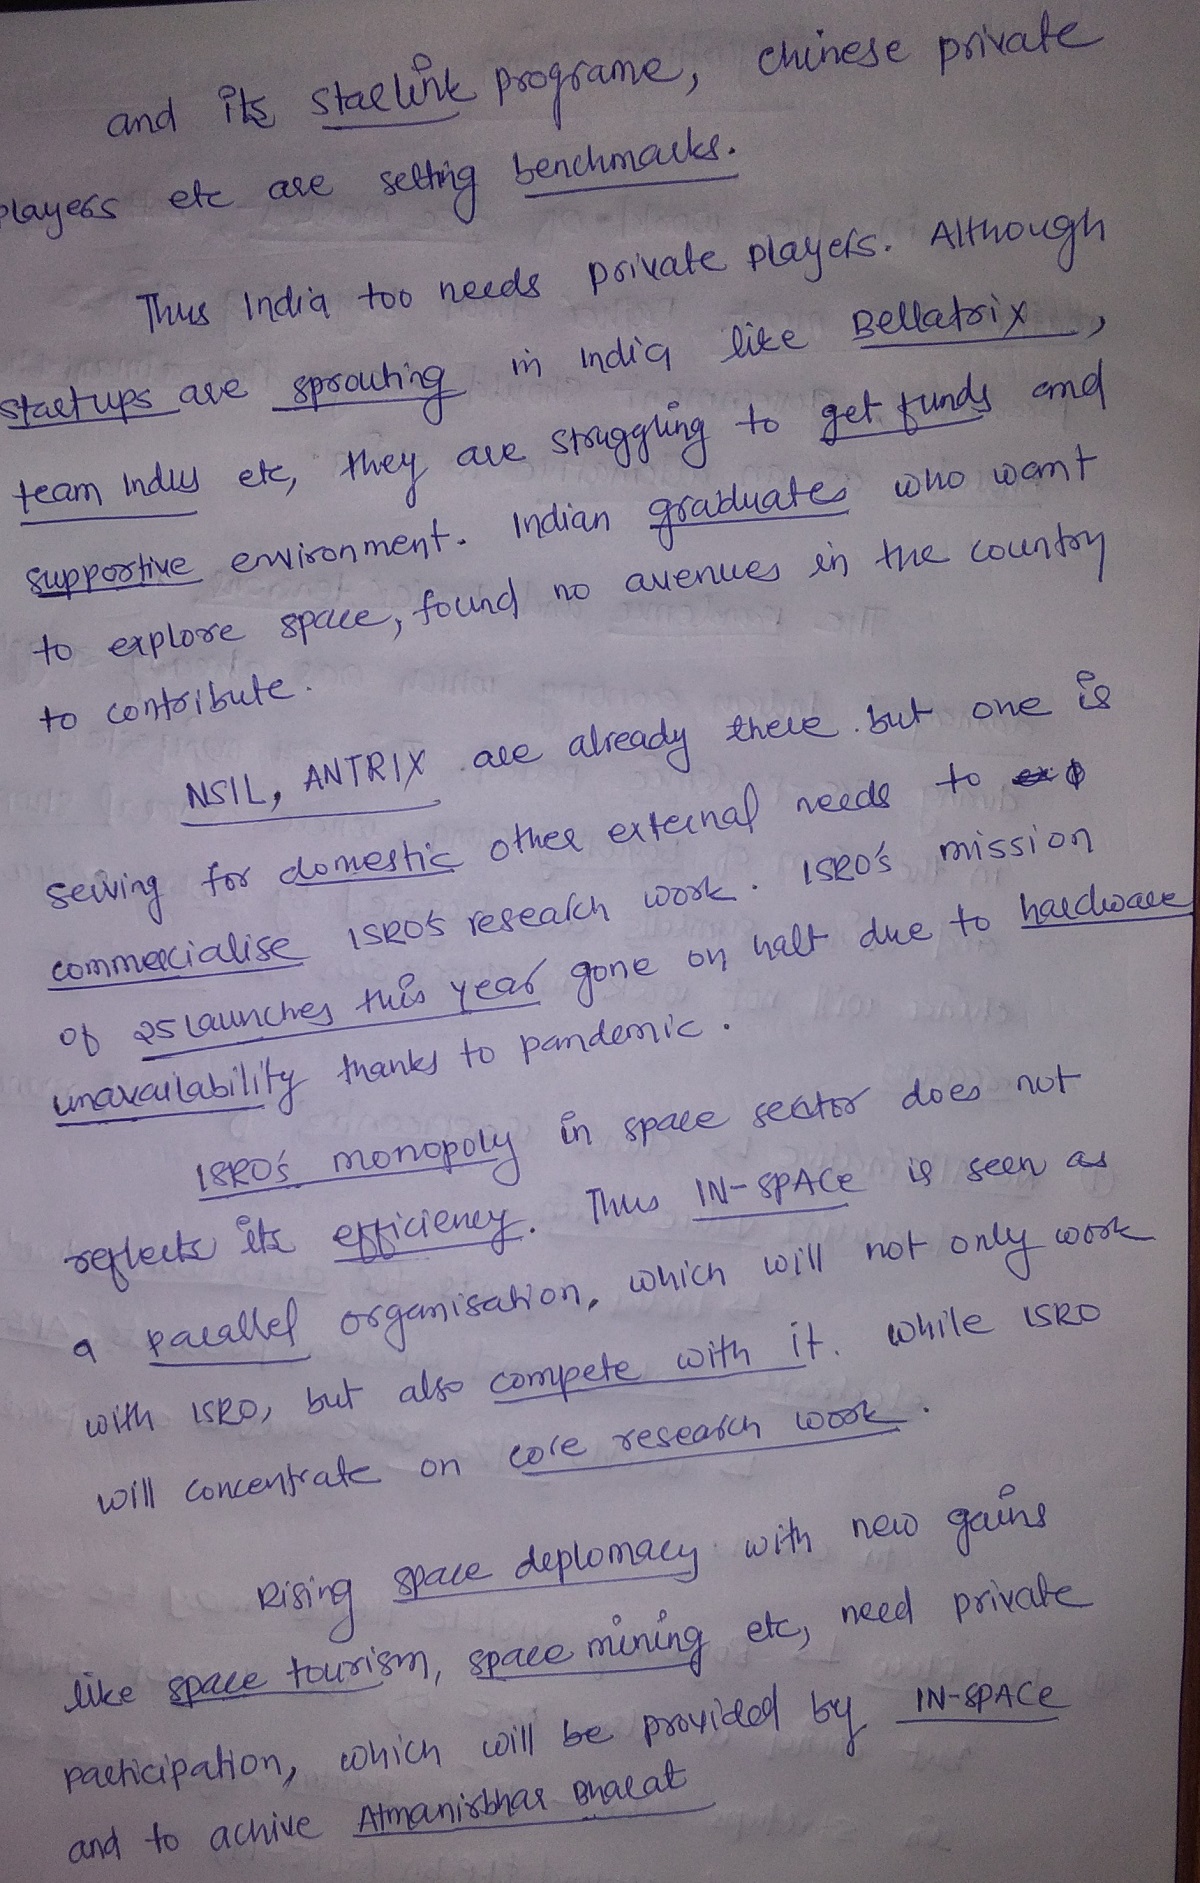 and its starlink programe, chinese private
players etc are setting benchmarks.
Thus India too needs private players. Although
startups are sprouting in India like Bellatrix,
team Indus etc, they are struggling to get funds and
supportive environment. Indian graduates who want
to explore space, found no avenues in the country
to contribute.
NSIL, ANTRIX are already there but one is
serving for domestic other external needs to
commercialise ISRO's research work. ISRO's mission
of 25 launches this year gone on halt due to hardware
unavailability thanks to pandemic.
ISRO's monopoly in space sector does not
reflects its efficiency. Thus IN-SPACe is seen as
a parallel organisation, which will not only work
with ISRO, but also compete with it. while ISRO
will concentrate on core research work.
Rising space deplomacy with new gains
like space tourism, space mining etc, need private
participation, which will be provided by IN-SPACe
and to achive Atmanirbhar Bharat